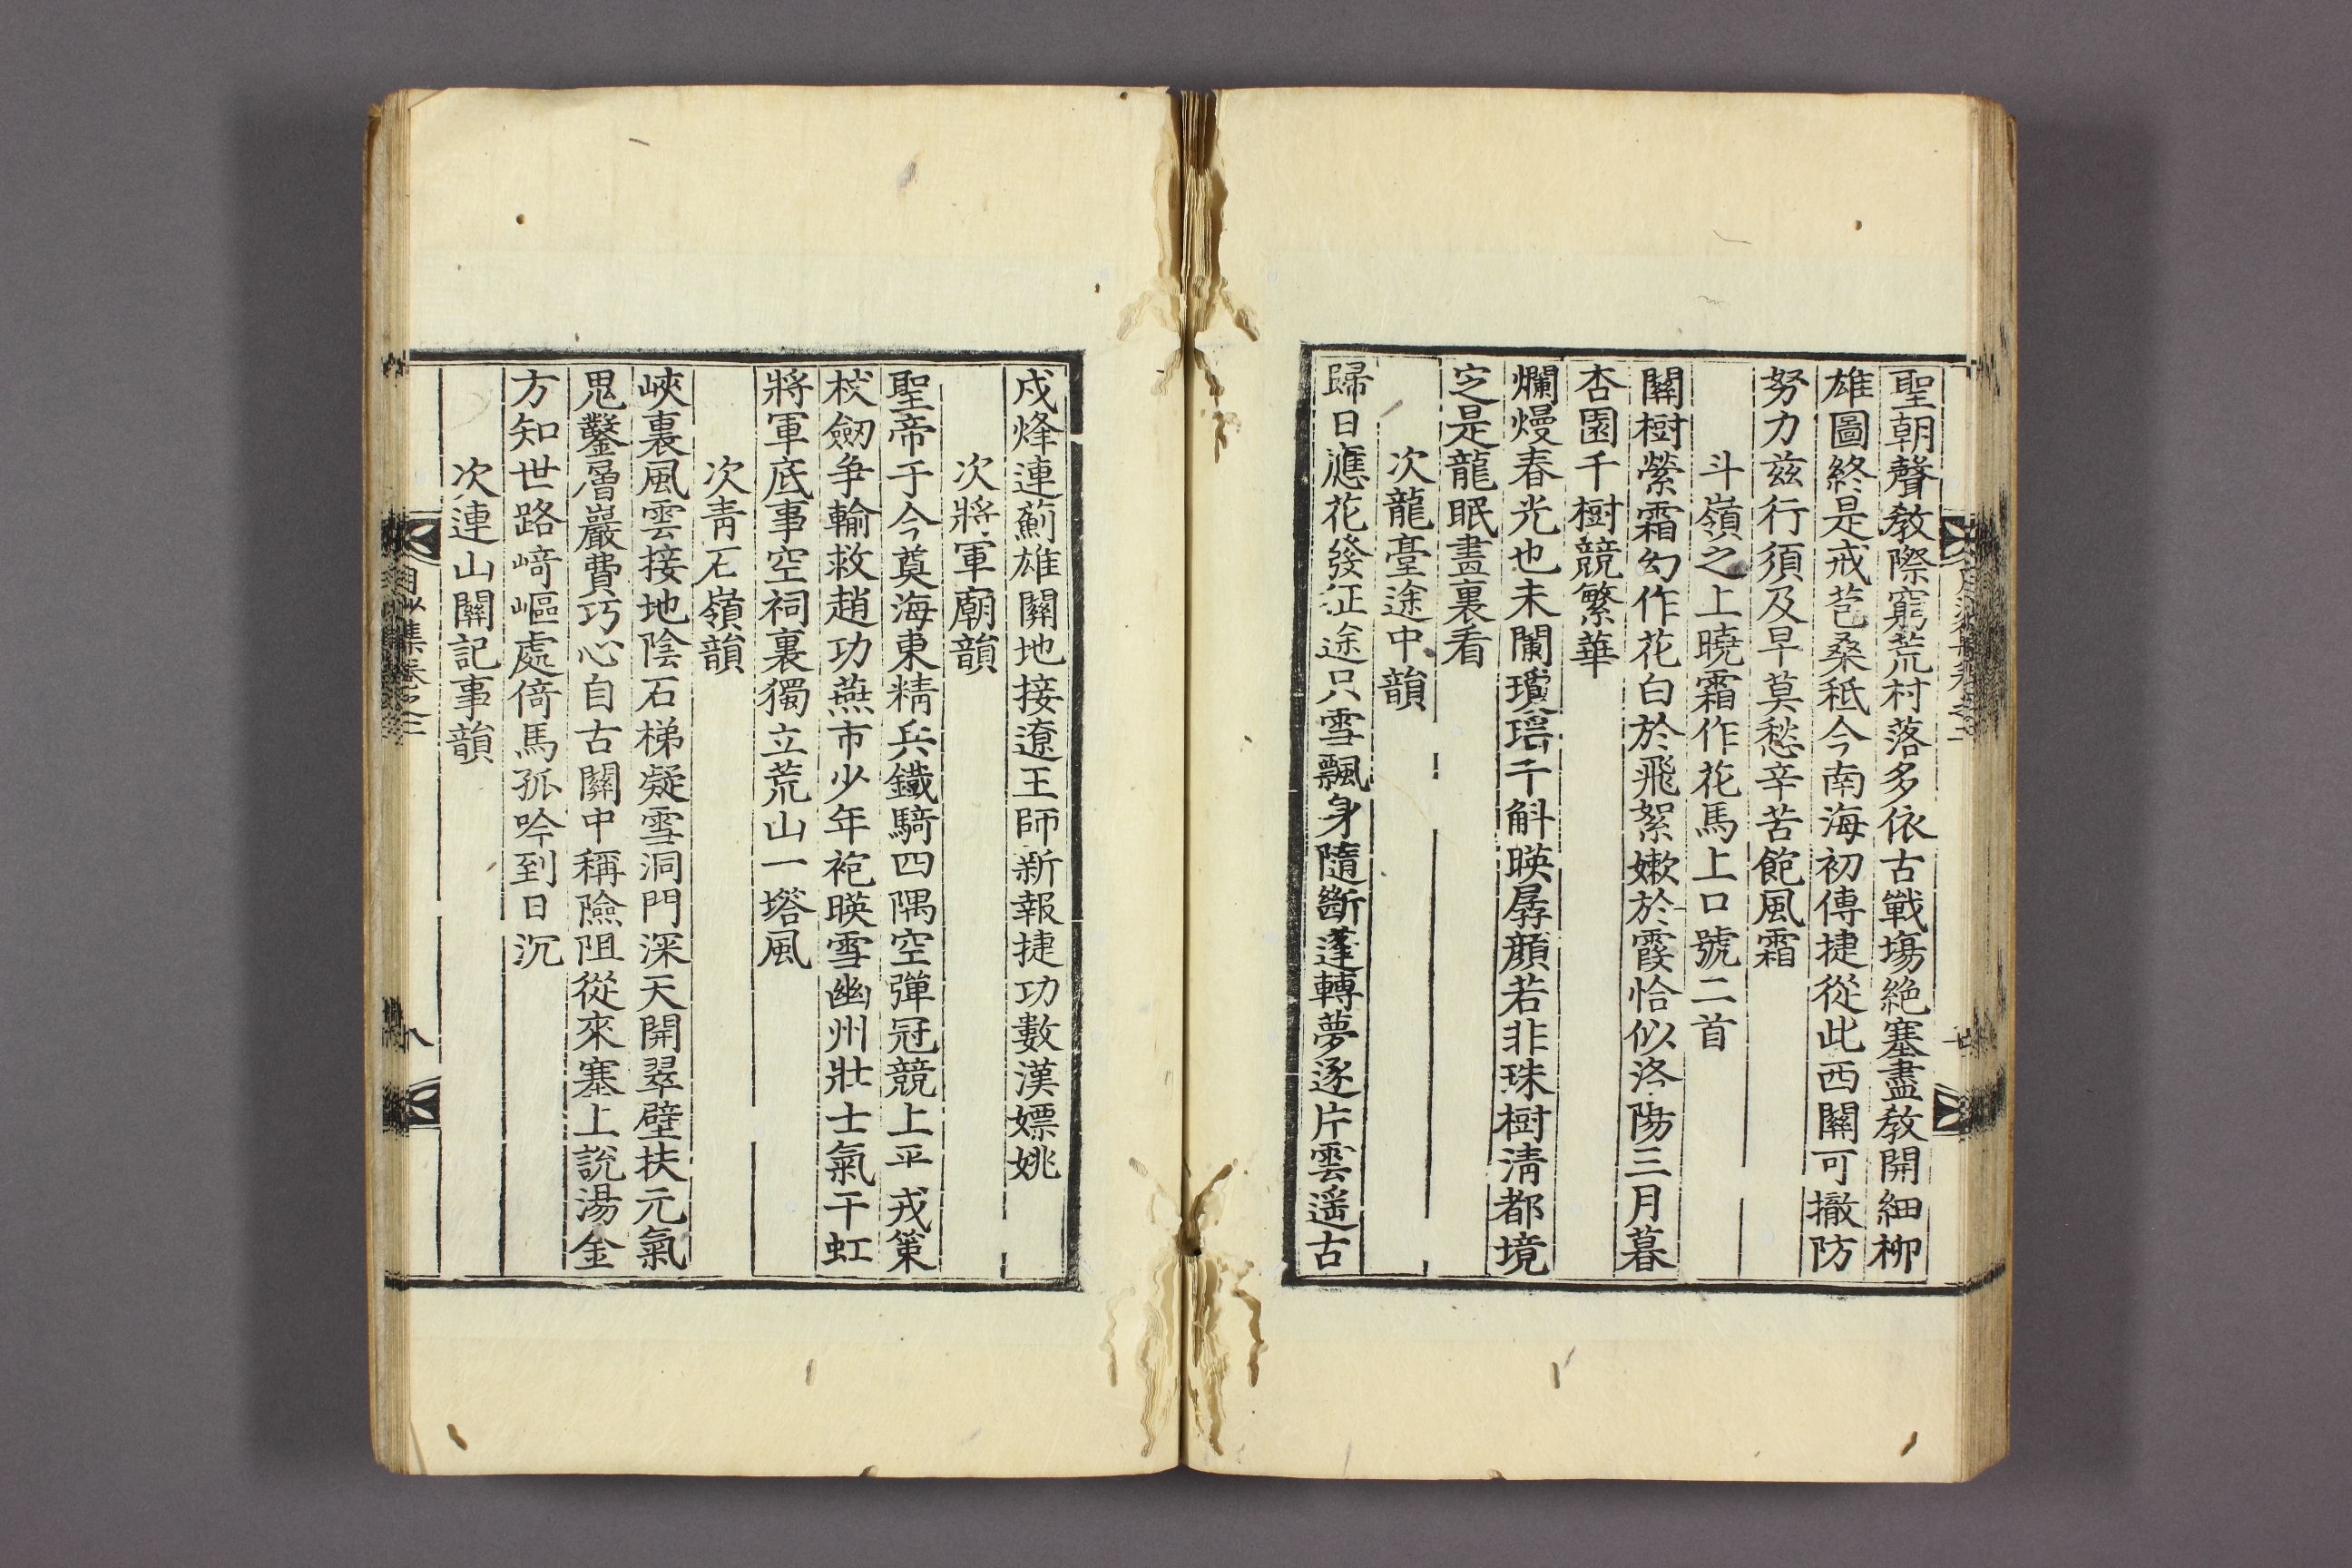 聖朝聲教際窮荒村落多依古戰塲絶塞盡教開細柳
雄圖終是戒苞桑秪今南海初傳捷從此西關可撤防
努力兹行須及早莫愁辛苦飽風霜
斗嶺之上曉霜作花馬上口號二首
關樹縈霜幻作花白於飛絮嫰於霞恰似洛陽三月暮
杏園千樹競繁華
爛熳春光也未闌瓊瑶千斛暎孱顔若非珠樹淸都境
定是龍眠畫裏看
次龍臺途中韻
歸日應花發征途只雪飄身隨斷蓬轉夢逐片雲遥古
戍烽連薊雄關地接遼王師新報捷功數漢嫖姚
次將軍廟韻
聖帝于今奠海東精兵鐵騎四隅空彈冠競上平戎策
杖劒爭輸救趙功燕市少年袍暎雪幽州壯士氣干虹
將軍底事空祠裏獨立荒山一塔風
次靑石嶺韻
峽裏風雲接地陰石梯凝雪洞門深天開翠壁扶元氣
鬼鑿層巖費巧心自古關中稱險阻從來塞上說湯金
方知世路﨑嶇處倚馬孤吟到日沉
次連山關記事韻
集卷之二
八